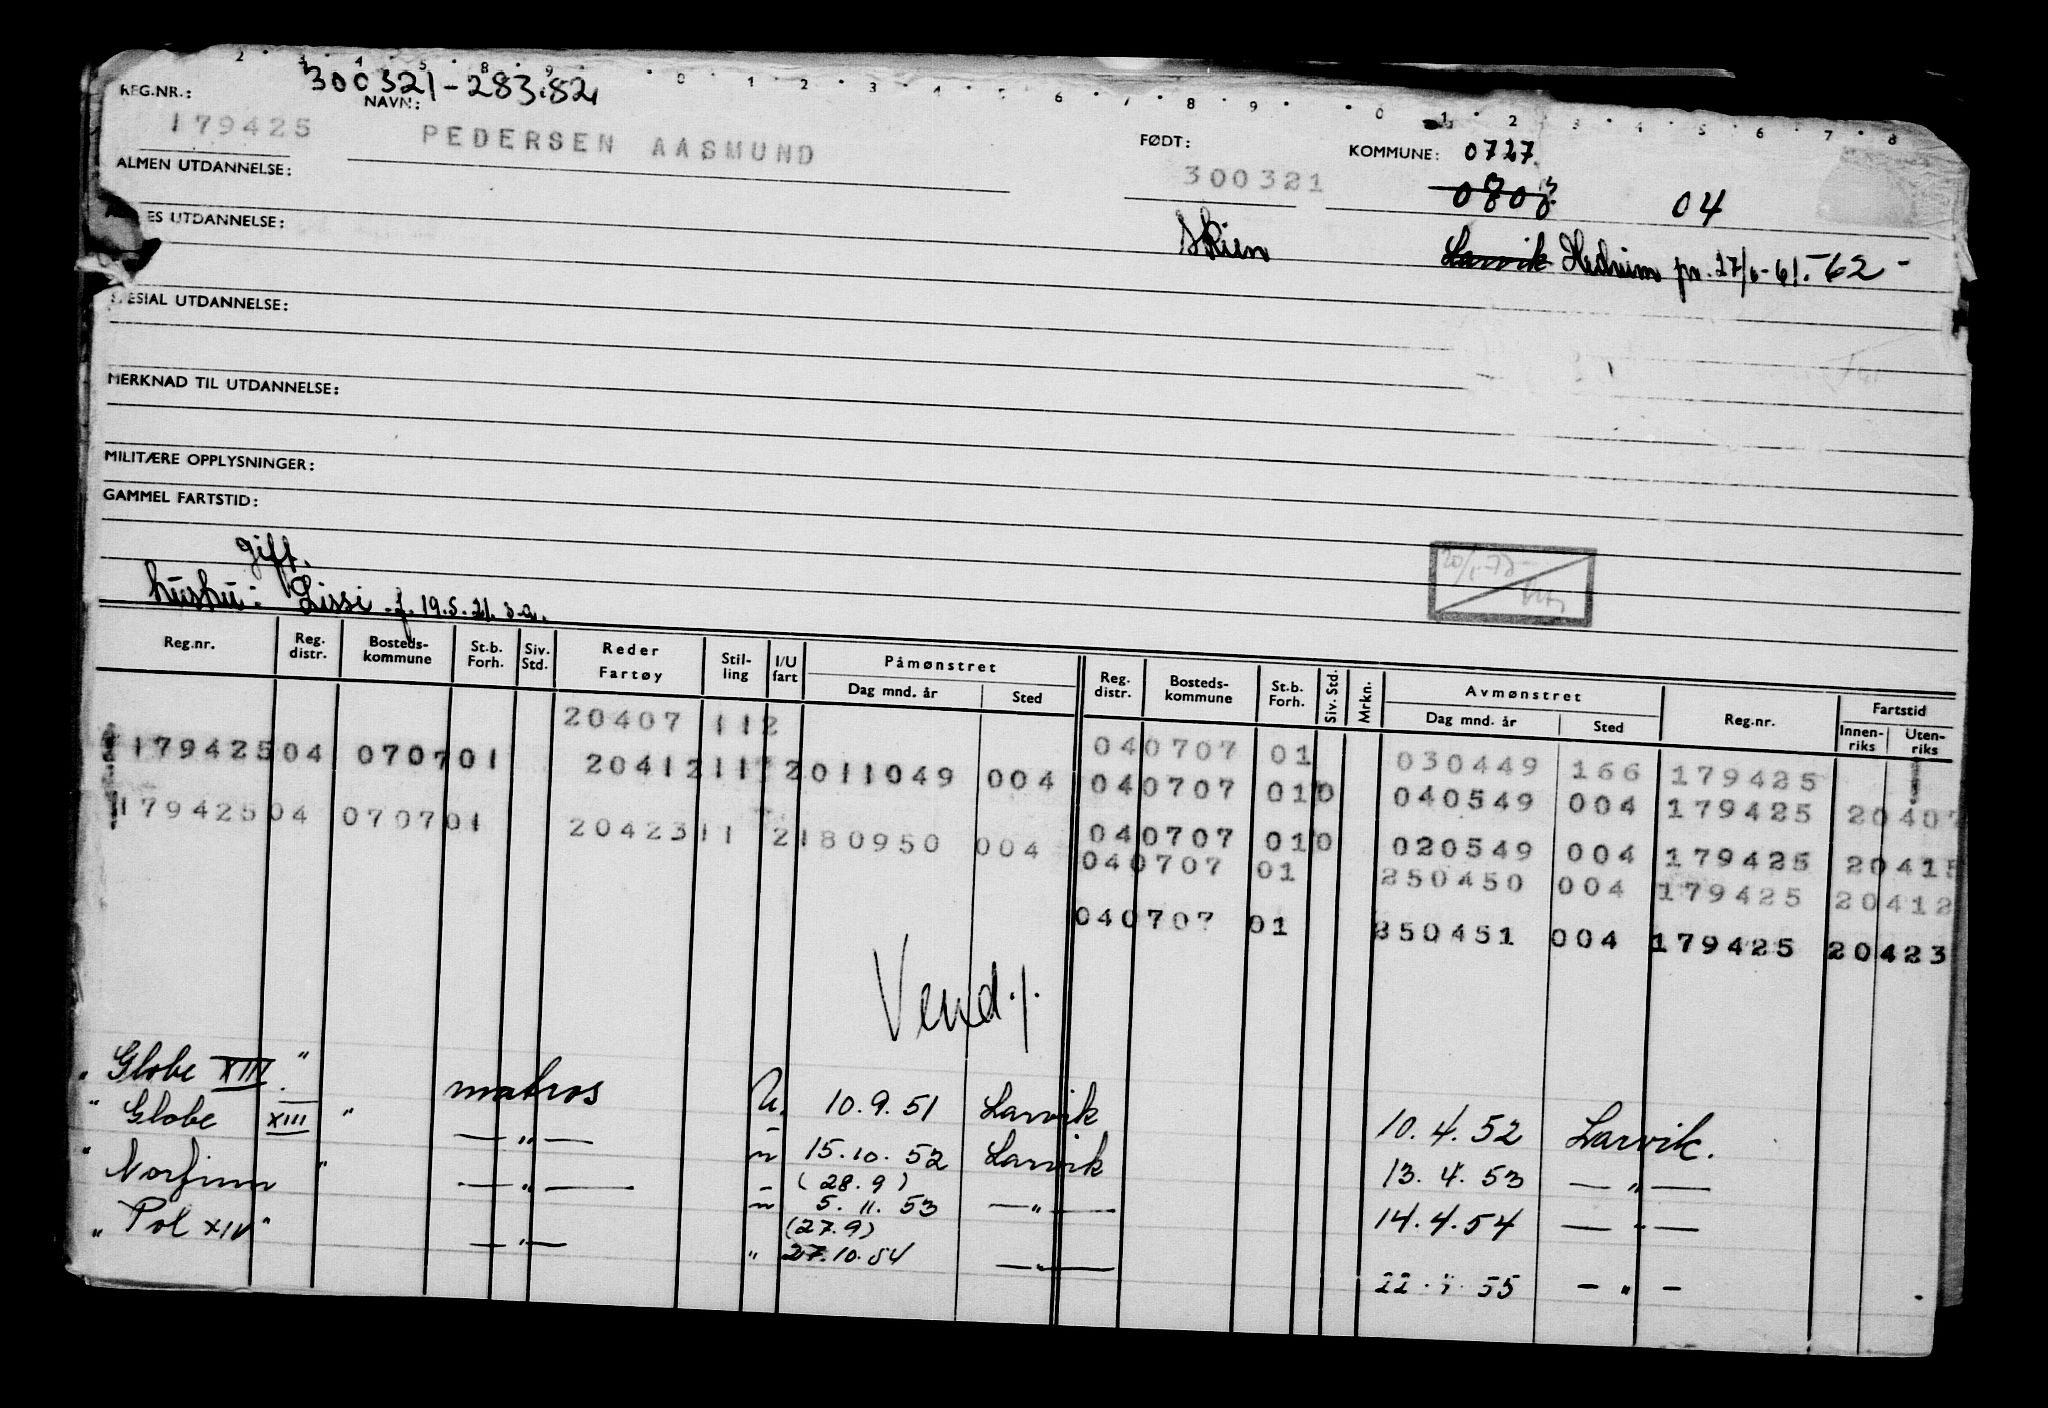 2 3 4 5 8 9 0 1 2 3 4 5 6 7 8 9 0 1 2 3 4 5 6 7 8
REG.NR.: 300321-283.82
NAVN:
179425 PEDERSEN AASMUND FØDT: 300321 KOMMUNE: 0727
ALMEN UTDANNELSE: 04
ES UTDANNELSE: Skien Larvik Hedrum pr. 27/6-61.-62-
SPESIAL UTDANNELSE:
MERKNAD TIL UTDANNELSE:
MILITÆRE OPPLYSNINGER:
GAMMEL FARTSTID:
gift.
hustru: Lissi f. 19.5.21. s.a.
Reg.nr. Reg. distr. Bosteds-kommune St.b. Forh. Siv. Std. Reder Fartøy Stil-ling I/U fart Påmønstret Dag mnd. år Sted Reg. distr. Bosteds-kommune St.b. Forh. Siv. Std. Mrkn. Avmønstret Dag mnd. år Sted Reg.nr. Fartstid Innen-riks Uten-riks
20407 112 040707 01 030449 166 179425
179425 04 0707 01 20412 11 2 011049 004 040707 01 0 040549 004 179425 20407
179425 04 0707 01 20423 11 2 180950 004 040707 01 0 020549 004 179425 20415
040707 01 250450 004 179425 20412
040707 01 250451 004 179425 20423
Vend ./.
" Globe XIII " matros U. 10.9.51 Larvik 10.4.52 Larvik.
" Globe XIII " — " — " 15.10.52 Larvik 13.4.53 — " —
(28.9)
" Norfinn " — " — " 5.11.53 — " — 14.4.54 — " —
(27.9)
" Pol XIV " — " — " 27.10.54 — " — 22. 55 — " —